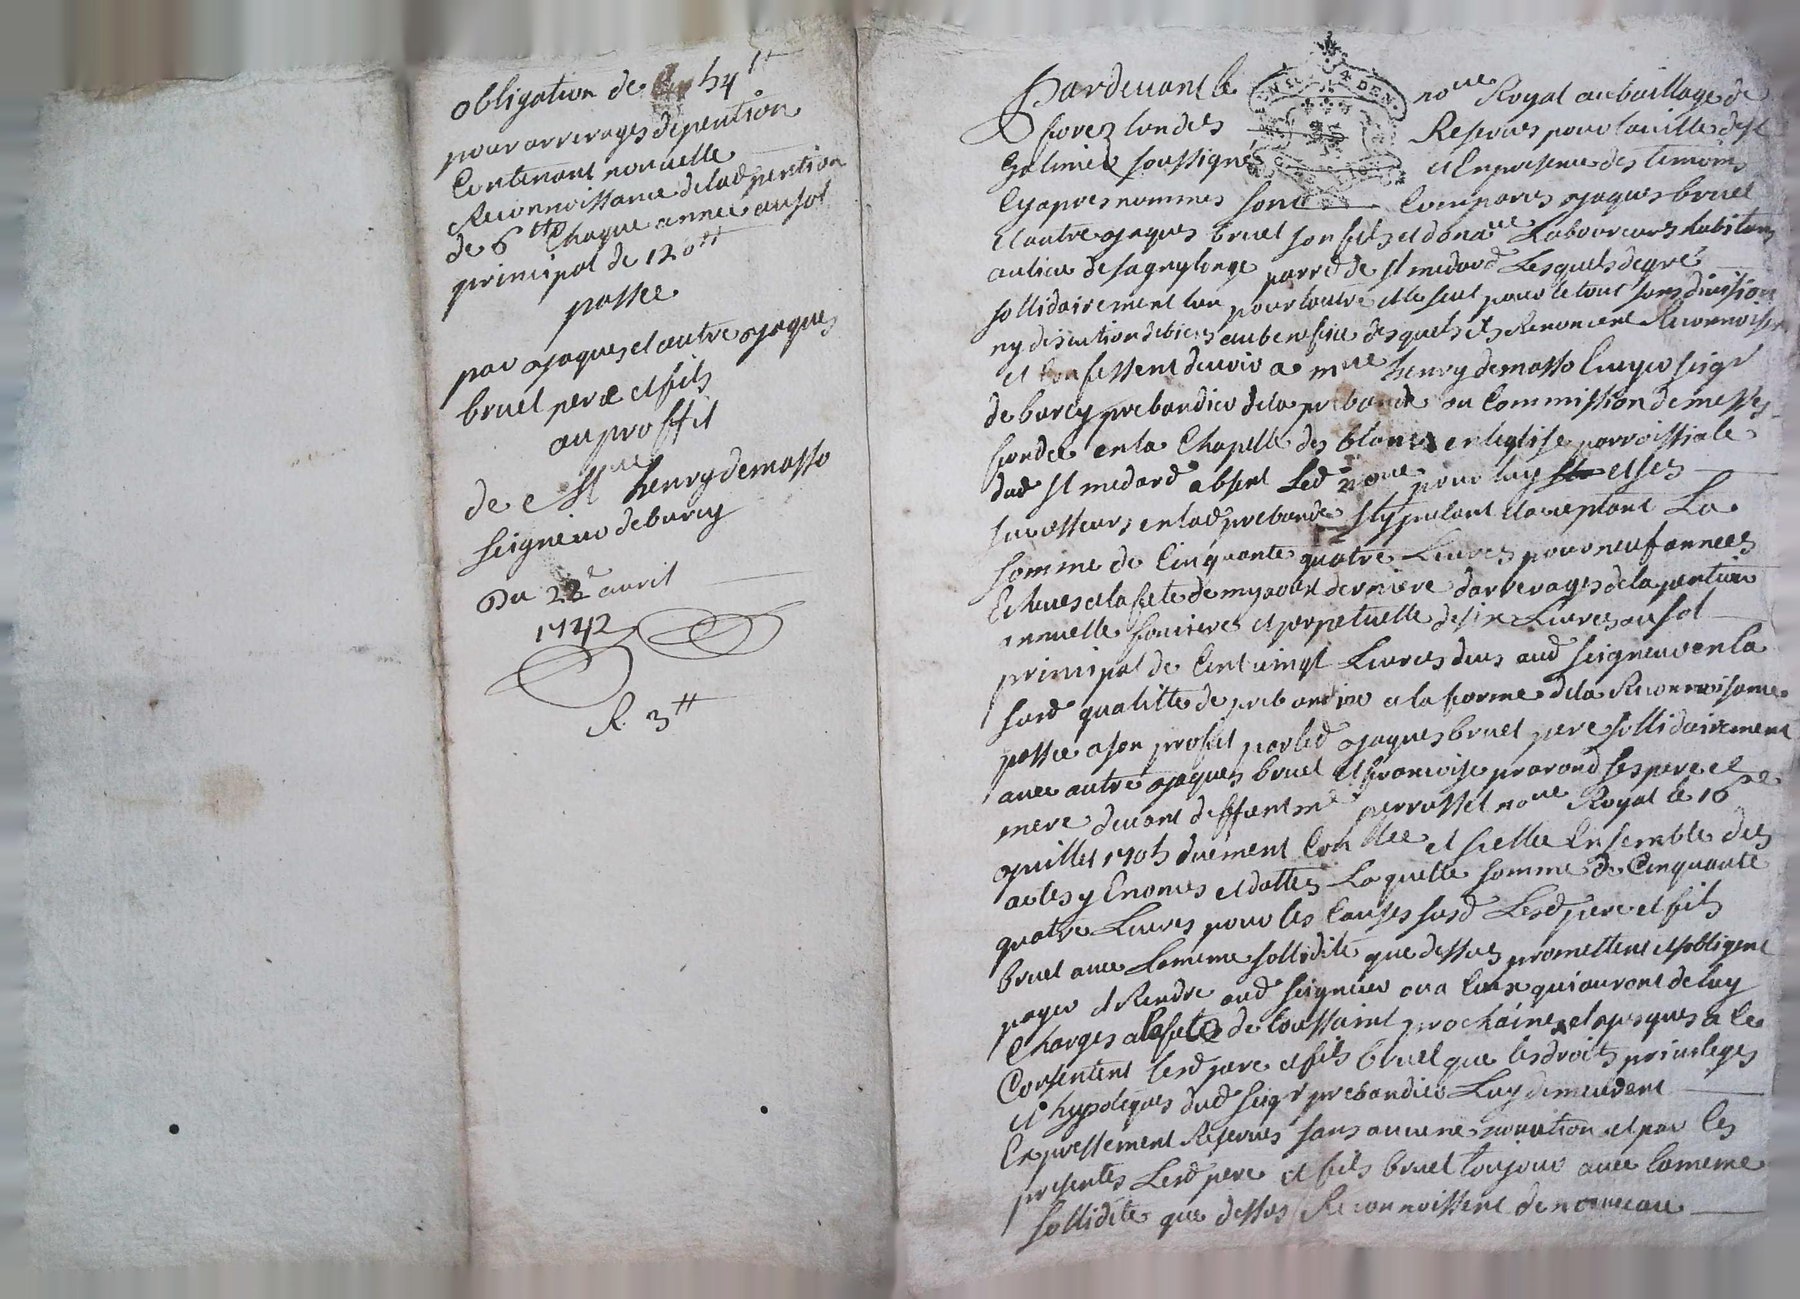 obligation de 54 lt
pour arrerages de pention
Contenant nouuelle
Reconnoissance de lad pention
de 6 lt Chaque annee au sol
principal de 120 lt
passee
par Jaques et autre Jaques
bruel pere et fils
au proffit
de Mre henry demasso
seigneur debarcy
Du 22e avril
1742
R. 3 lt
Pardeuant le nore Royal au baillage de
forez Landes Reserues pour la uille de st
Galmier soussigné et En presence des temoins
Cy apres nommes sont Comparus Jaques bruel
et autre Jaques bruel son fils et donare Laboureurs habitans
au lieu de parre de st medard Lesquels de gré
sollidairement lun pour lautre et le seul pour le tout sans diuision
ny discution de biens au benefice desquels ils Renoncent Reconnoissent
et Confessent deuoir a mre henry demasso Ecuyer seigr
de barcy prebandier de la prebande ou Commission de messes
fondee en la Chapelle des blancs en leglise parroissiale
dud st medard absent Led nore pour luy et ses
successeurs en lad prebande stypulant et acceptant La
somme de Cinquante quatre Liures pour neuf annees
Echues a la fete de my aoust derniere darrerages de la pention
annuelle fonciere et perpetuelle de six Liures au sol
principal de Cent uingt Liures deus aud seigneur en la
susd qualitte de prebandier a la forme de la Reconnoisance
passee a son profit par led Jaques bruel pere sollidairement
auec autre Jaques bruel et francoise prarond ses pere et
mere deuant deffunt me perrussel nore Royal le 16e
Juillet 1705 duement Conllee et scellee Ensemble des
actes y Enonces et dattes Laquelle somme de Cinquante
quatre Liures pour les Causes susd Lesd pere et fils
bruel auec Lameme sollidité que dessus promettent et sobligent
payer et Rendre aud seigneur ou a Ceux qui auront de luy
Charges a la fete de toussaint prochaine et Jusques a ce
Consentent lesd pere et fils bruel que les droits priuileges
et hypoteques dud seigr prebandier Luy demeurent
Expressement Reserues sans aucune nouation et par les
presentes Lesd pere et fils bruel toujour auec lameme
sollidite que dessus Reconnoissent de nouueau